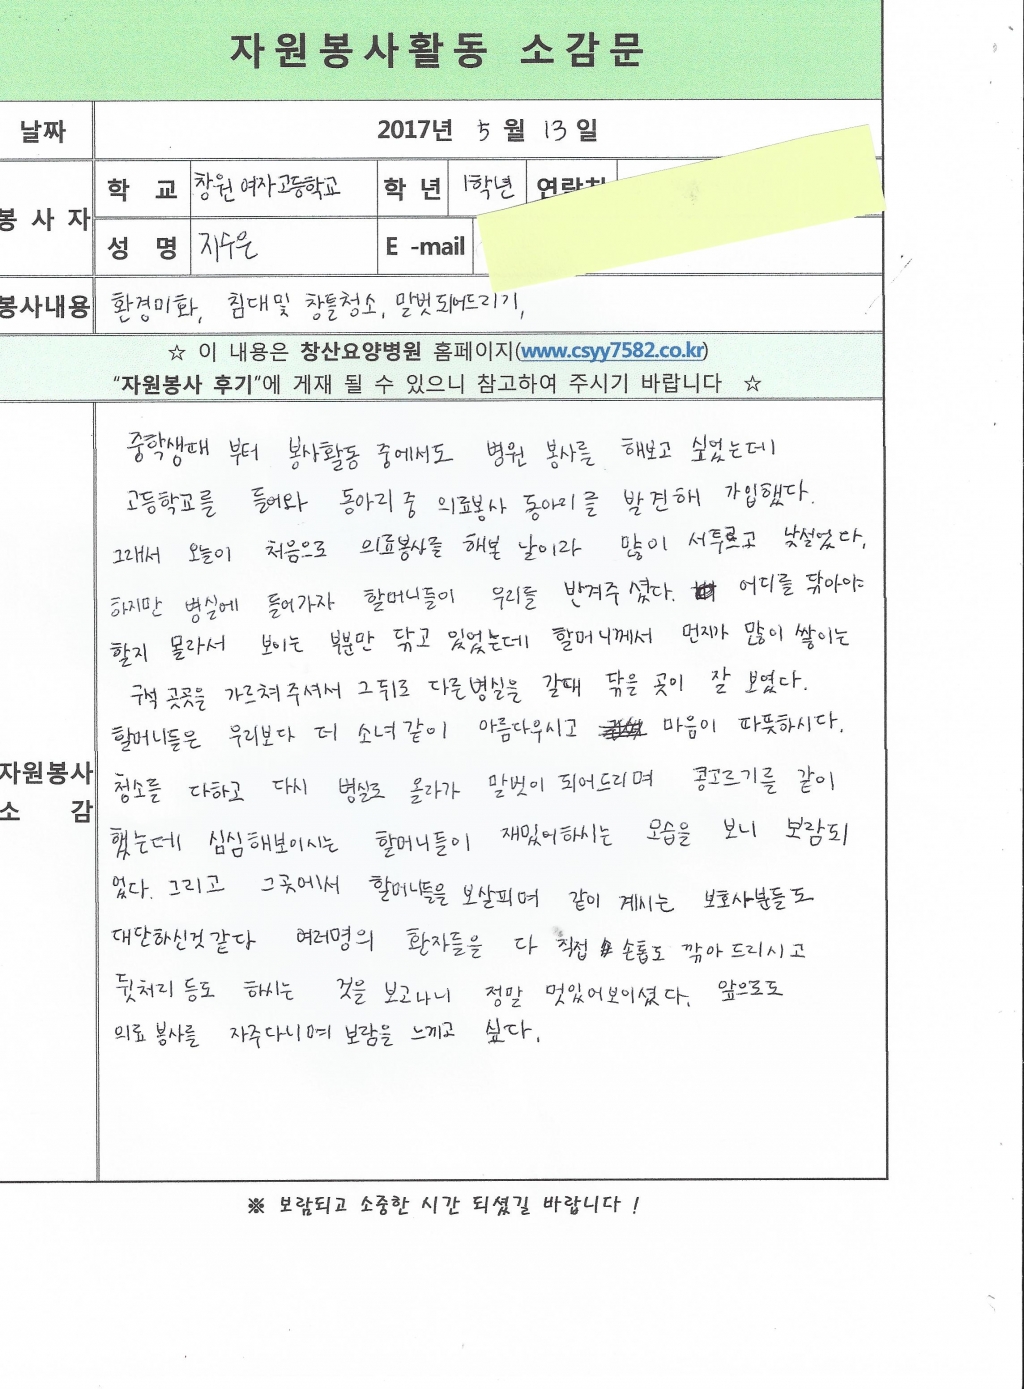 자원봉사활동 소감문
날짜 2017년 5월 13일
봉사자 학 교 창원여자고등학교 학 년 1학년 연락처
성 명 지수은 E -mail
봉사내용 환경미화, 침대및 창틀청소, 말벗되어드리기,
☆ 이 내용은 창산요양병원 홈페이지(www.csyy7582.co.kr)
"자원봉사 후기"에 게재 될 수 있으니 참고하여 주시기 바랍니다 ☆
자원봉사 소 감
중학생때 부터 봉사활동 중에서도 병원 봉사를 해보고 싶었는데
고등학교를 들어와 동아리 중 의료봉사 동아리를 발견해 가입했다.
그래서 오늘이 처음으로 의료봉사를 해본 날이라 많이 서투르고 낯설었다.
하지만 병실에 들어가자 할머니들이 우리들 반겨주셨다. 어디를 닦아야
할지 몰라서 보이는 부분만 닦고 있었는데 할머니께서 먼지가 많이 쌓이는
구석 곳곳을 가르쳐주셔서 그뒤로 다른병실을 갈때 닦을 곳이 잘 보였다.
할머니들은 우리보다 더 소녀같이 아름다우시고 마음이 따뜻하시다.
청소를 다하고 다시 병실로 올라가 말벗이 되어드리며 콩고르기를 같이
했는데 심심해보이시는 할머니들이 재밌어하시는 모습을 보니 보람되
었다. 그리고 그곳에서 할머니들을 보살피며 같이 계시는 보호사분들도
대단하신것같다 여러명의 환자들을 다 직접 손톱도 깎아드리시고
뒷처리 등도 하시는 것을 보고나니 정말 멋있어보이셨다. 앞으로도
의료 봉사를 자주다니며 보람을 느끼고 싶다.
※ 보람되고 소중한 시간 되셨길 바랍니다 !